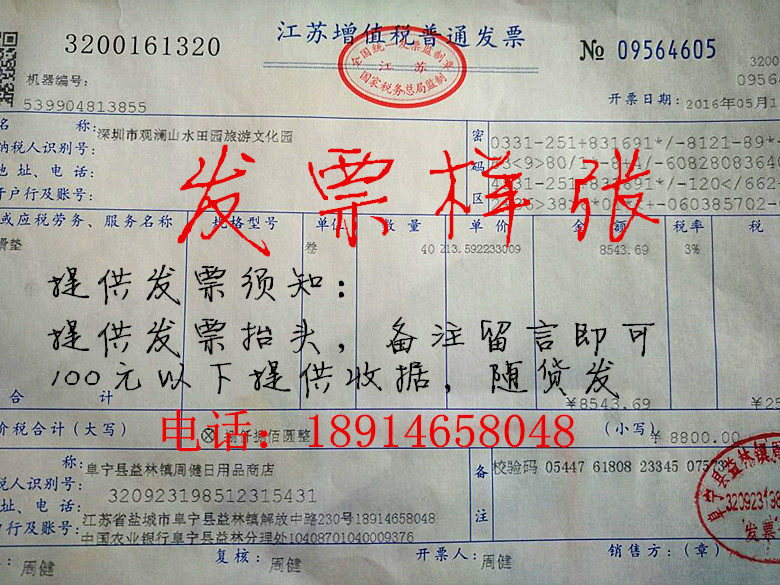 江苏增值税普通发票
3200161320
№ 09564605
3200
09564
全国统一发票监制章
江苏
国家税务总局监制
机器编号:
539904813855
开票日期: 2016年05月1
名 称: 深圳市观澜山水田园旅游文化园
纳税人识别号:
地 址、电 话:
开户行及账号:
密码区
0331-251+831691*/-8121-89*-
发票样张
或应税劳务、服务名称 规格型号 单位 数量 单价 金额 税率 税
滑垫 卷 40 213.592233009 8543.69 3%
提供发票须知:
提供发票抬头, 备注留言即可
100元以下提供收据, 随货发
合 计 ¥8543.69 ¥25
电话: 18914658048
价税合计(大写) ⊗捌仟捌佰圆整 (小写) ¥8800.00
称: 阜宁县益林镇周健日用品商店
人识别号: 320923198512315431
址、电 话: 江苏省盐城市阜宁县益林镇解放中路230号18914658048
户行及账号: 中国农业银行阜宁县益林分理处10408701040009376
备注
校验码 05447 61808 23345 0757
阜宁县益林镇周
32092319851
发票
周健 复核: 周健 开票人: 周健 销售方:(章)